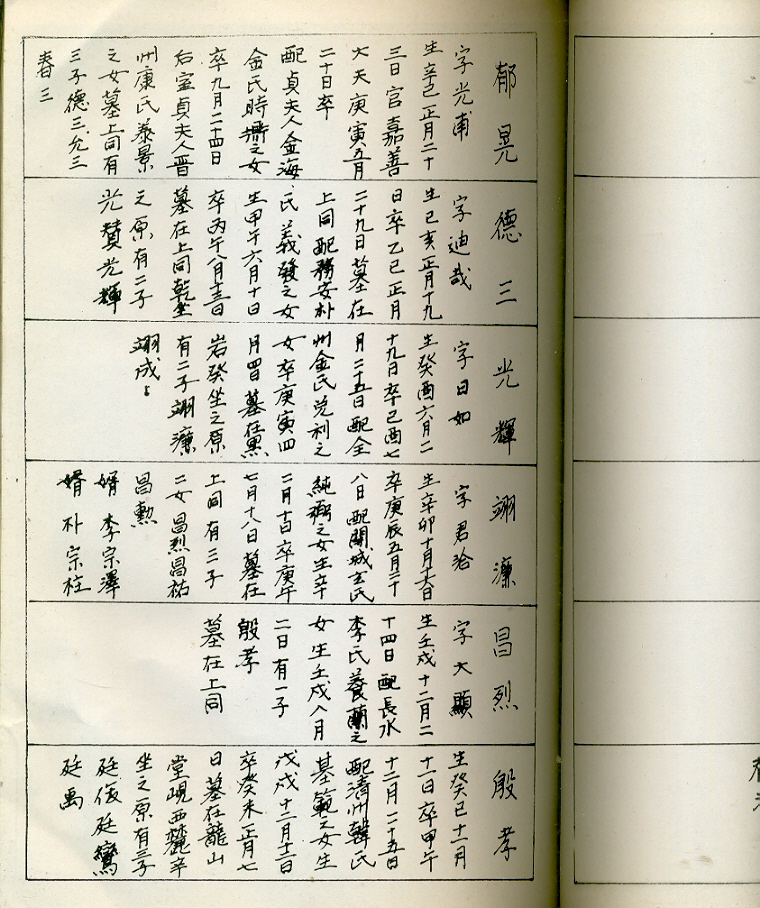 郁晃
字光甫
生辛巳正月二十
三日官嘉善
大夫庚寅五月
二十日卒
配貞夫人金海
金氏時㩗之女
卒九月二十四日
后室貞夫人晋
州康氏泰景
之女墓上同有
三子德三允三
春三
德三
字迪哉
生己亥正月十九
日卒乙巳正月
二十九日墓在
上同配務安朴
氏義發之女
生甲午六月十日
卒丙午八月十三日
墓在上同乾坐
之原有二子
光贊光輝
光輝
字日如
生癸酉六月二
十九日卒己酉七
月二十五日配全
州金氏兌利之
女卒庚寅四
月四日墓在黑
岩癸坐之原
有二子翊濂
翊成
翊濂
字君洽
生辛卯十月六日
卒庚辰五月二十
八日配開城玄氏
純弼之女生辛
二月十日卒庚午
七月十八日墓在
上同有三子
二女昌烈昌祐
昌勲
婿李宗澤
婿朴宗柱
昌烈
字大顯
生壬戌十二月二
十四日配長水
李氏養蘭之
女生壬戌八月
二日有一子
殷孝
墓在上同
殷孝
生癸巳十一月
十一日卒甲午
十二月二十五日
配清州韓氏
基範之女生
戊戌十二月十二日
卒癸未正月七
日墓在龍山
堂峴西麓辛
坐之原有三子
廷俊廷鸞
廷禹